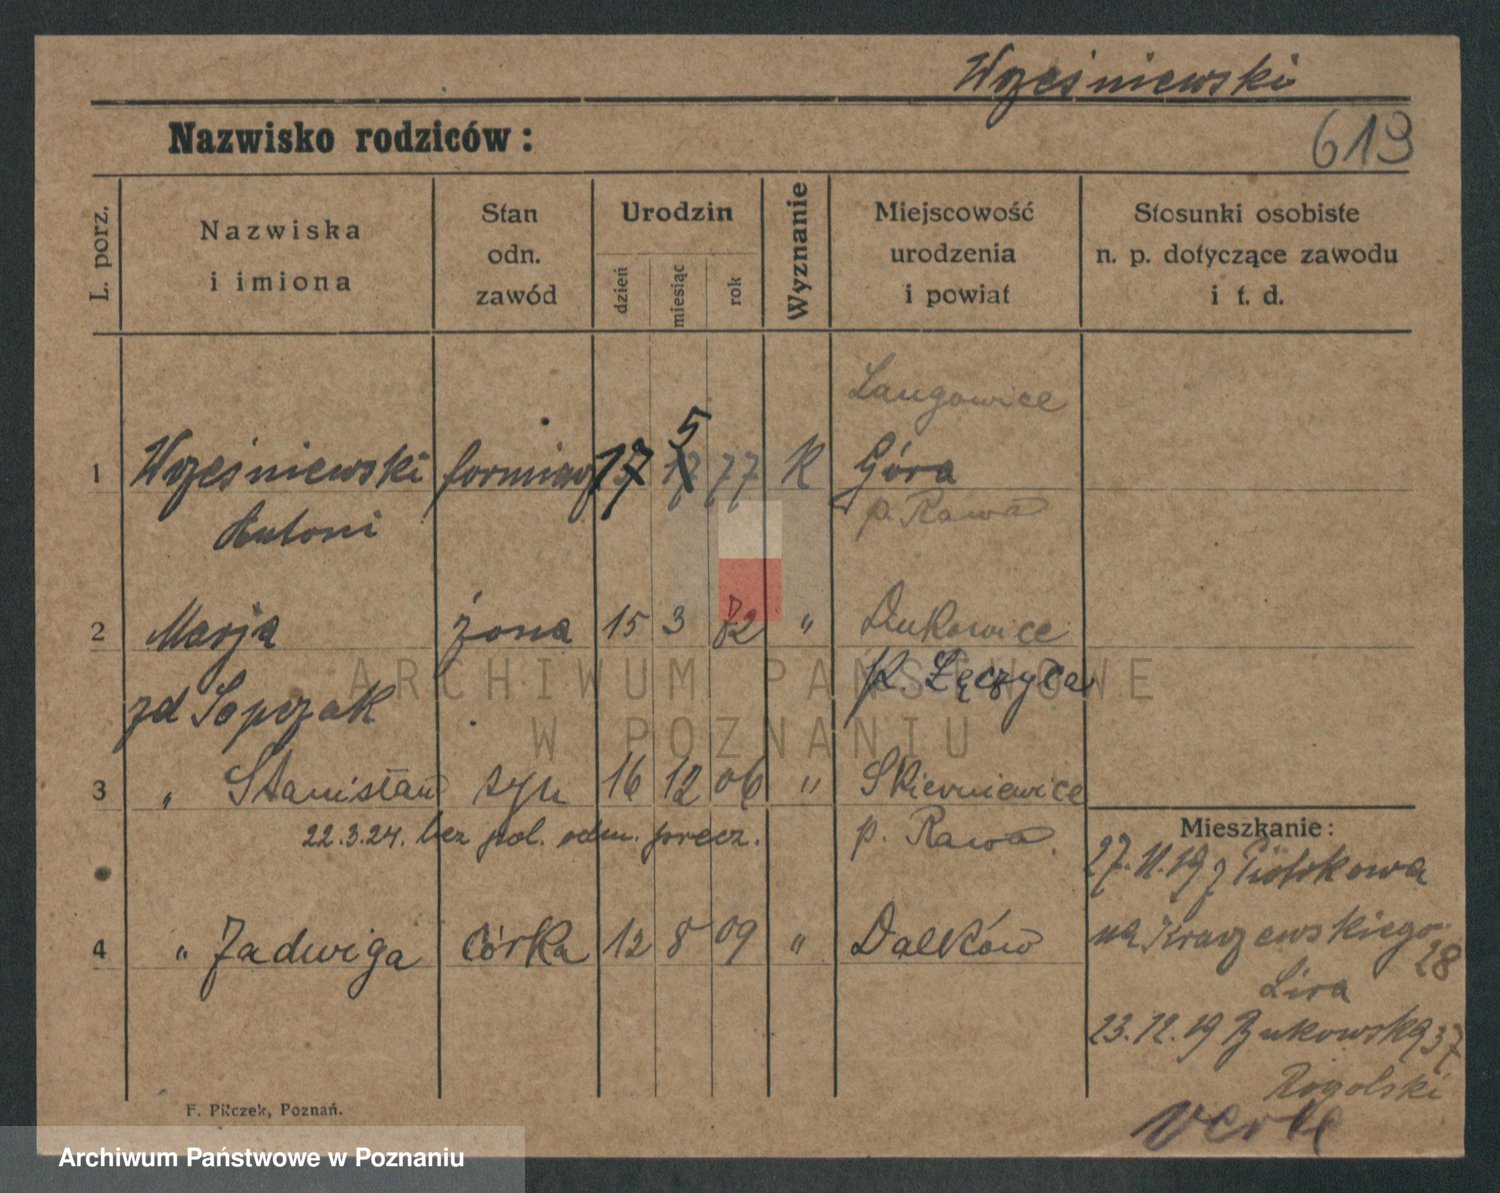 Wrześniewski
Nazwisko rodziców:
613
L. porz.
Nazwiska
i imiona
Stan
odn.
zawód
Urodzin
dzień
miesiąc
rok
Wyznanie
Miejscowość
urodzenia
i powiat
Stosunki osobiste
n. p. dotyczące zawodu
i t. d.
5
1 Wrześniewski formierz 17 12 77 R Góra
Antoni p. Rawa
2 Marja żona 15 3 82 " Dukowice
zd Sopczak p. Łęczyca
3 " Stanisław syn 16 12 06 " Skierniewice
22.3.24. bez pol. odm. przecz. p. Rawa.
4 " Jadwiga córka 12 8 09 " Dalków
Mieszkanie:
27.11.19 z Piotrkowa
na Kraszewskiego
18
Lira
23.12.19 Bukowska 37
Rogolski
verte
F. Pilczek, Poznań.
ARCHIWUM PAŃSTWOWE
W POZNANIU
Archiwum Państwowe w Poznaniu